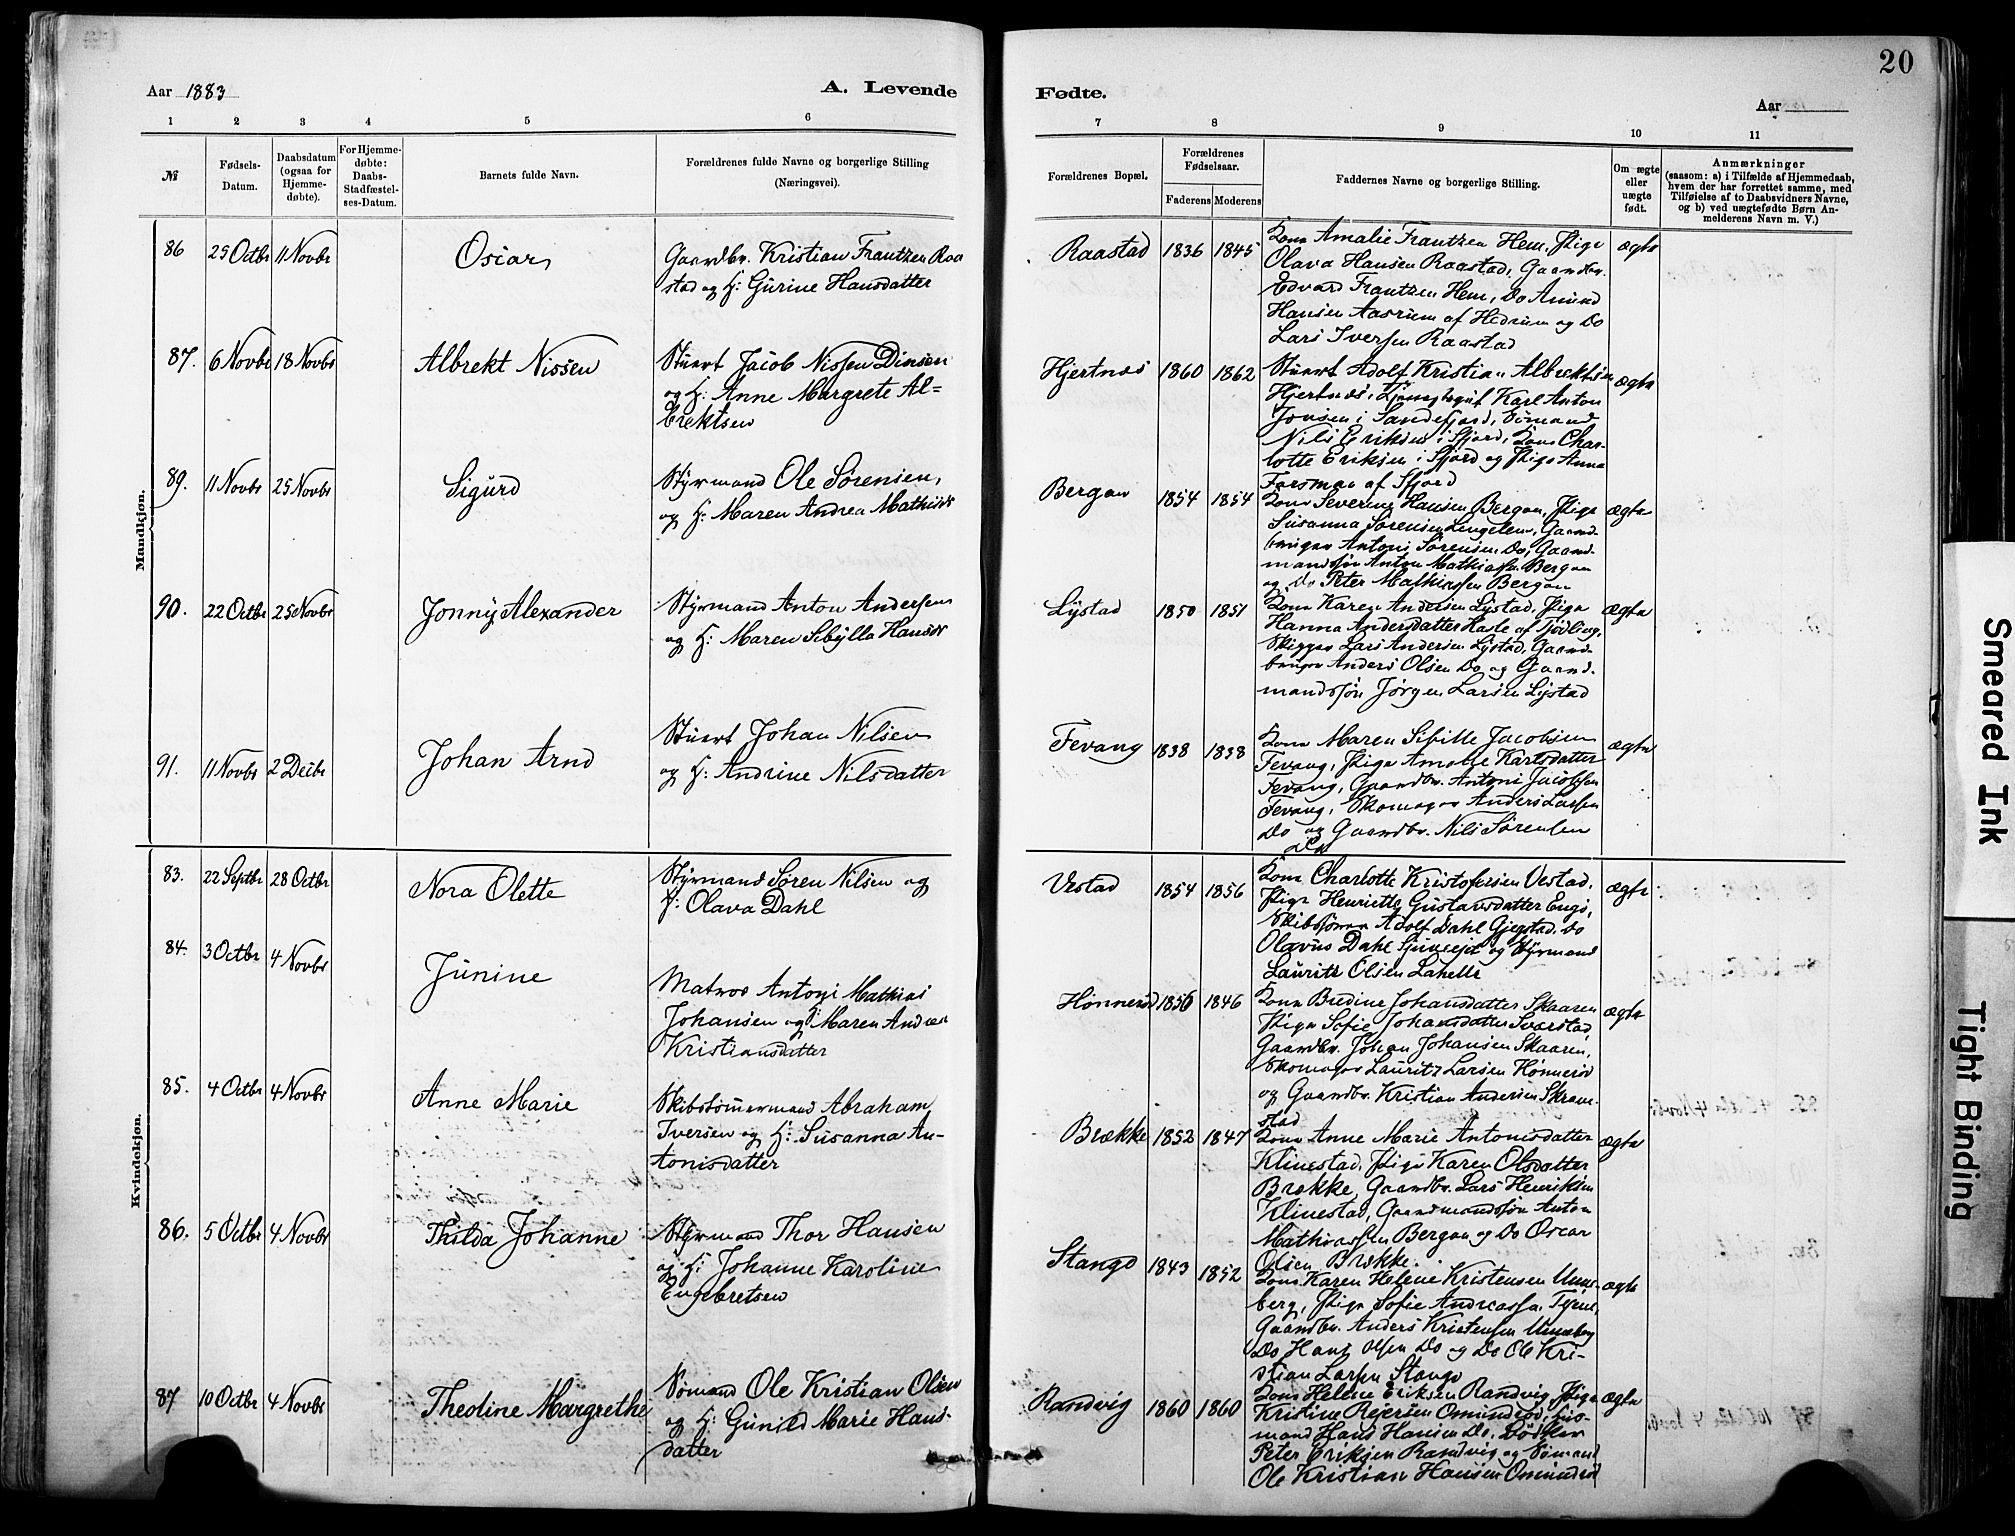 20
Aar 1883
A. Levende
Fødte.
Aar
1 2 3 4 5 6
7 8 9 10 11
№
Fødsels-
Datum.
Daabsdatum
(ogsaa for
Hjemme-
døbte).
For Hjemme-
døbte:
Daabs-
Stadfæstel-
ses-Datum.
Barnets fulde Navn.
Forældrenes fulde Navne og borgerlige Stilling
(Næringsvei).
Forældrenes Bopæl.
Forældrenes
Fødselsaar.
Faderens Moderens
Faddernes Navne og borgerlige Stilling.
Om ægte
eller
uægte
født.
Anmærkninger
(saasom: a) i Tilfælde af Hjemmedaab,
hvem der har forrettet samme, med
Tilføielse af to Daabsvidners Navne,
og b) ved uægtefødte Børn An-
melderens Navn m. V.)
Mandkjøn.
86
25 Octbr 11 Novbr
Oscar
Gaardbr. Kristian Frantzen Raa
stad og H: Gurine Hansdatter
Raastad 1836 1845
Kone Amalie Frantzen Hem, Pige
Olava Hansen Raastad, Gaardbr.
Edvard Frantzen Hem, Do Amund
Hansen Aasrum af Hedrum og Do
Lars Iversen Raastad
ægte
87. 6 Novbr 18 Novbr
Albrekt Nissen
Stuert Jacob Nissen Dinsen
og H: Anne Margrete Al=
brektsen
Hjertnes 1860 1862
Stuert Adolf Kristian Albrektsen
Hjertnes, Karl Anton
Jonsen i Sandefjord, Sømand
Nils Eriksen i Sfjord, Kone Char-
lotte Eriksen i Sfjord og Pige Anna
Forsman af Sfjord
ægte
89. 11 Novbr 25 Novbr
Sigurd
Styrmand Ole Sørensen,
og H: Maren Andrea Mathisdr
Bergan 1854 1854
Kone Severine Hansen Bergan, Pige
Susanna Sørensen Lengelem, Gaard-
bruger Antoni Sørensen Do, Gaard-
mandssøn Anton Mathiassen Bergan
og Do Peter Mathiassen Bergan
ægte
90. 22 Octbr 25 Novbr
Jonny Alexander
Styrmand Anton Andersen
og H: Maren Sibylla Hansdr
Lystad 1850 1851
Kone Karen Andersen Lystad, Pige
Hanna Andersdatter Haste af Tjødling,
Skipper Lars Andersen Lystad, Gaard-
bruger Anders Olsen Do og Gaard-
mandssøn Jørgen Larsen Lystad
ægte
91. 11 Novbr 2 Decbr
Johan Arnd
Stuert Johan Nilsen
og H: Andrine Nilsdatter
Fevang 1838 1838
Kone Maren Sibille Jacobsen
Fevang, Pige Amalie Karlsdatter
Fevang, Gaardbr. Antoni Jacobsen
Fevang, Skomager Anders Larsen
Do og Gaardbr. Nils Sørensen
Do
ægte
Kvindekjøn.
83. 22 Septbr 28 Octbr
Nora Olette
Styrmand Søren Nilsen og
H: Olava Dahl
Vestad 1854 1856
Kone Charlotte Kristofersen Vestad,
Pige Henriette Gustavsdatter Engø,
Skibstømrer Adolf Dahl Gjegstad, Do
Olavus Dahl og Styrmand
Lauritz Olsen Lahelle
ægte
84. 3 Octbr 4 Novbr
Junine
Matros Antoni Mathias
Johansen og H: Maren Andrea
Kristiansdatter
Hønnerød 1856 1846
Kone Bredine Johansdatter Skaaren
Pige Sofie Johansdatter Sværstad,
Gaardbr. Johan Johansen Skaaren,
Skomager Lauritz Larsen Hønnerød
og Gaardbr. Kristian Andersen Skrave-
stad
ægte
85. 4 Octbr 4 Novbr
Anne Marie
Skibstømmermand Abraham
Iversen og H: Susanna An-
tonisdatter
Brække 1852 1847
Kone Anne Marie Antonisdatter
Klinestad, Pige Karen Olsdatter
Brække, Gaardbr. Lars Henriksen
Klinestad, Gaardmandssøn Anton
Mathiassen Bergan og Do Oscar
Olsen Brække.
ægte
86. 5 Octbr 4 Novbr
Thilda Johanne
Styrmand Thor Hansen
og H: Johanne Karoline
Engebretsen
Stangø 1843 1852
Kone Karen Helene Kristensen Unne-
berg, Pige Sofie Andreassen
Gaardbr. Anders Kristensen Unneberg
Do Hans Olsen Do og Do Ole Kri-
stian Larsen Stangø
ægte
87 10 Octbr 4 Novbr
Theoline Margrethe
Sømand Ole Kristian Olsen
og H: Gunild Marie Hans-
datter
Randvig 1860 1860
Kone Helene Eriksen Randvig, Pige
Kristine Reiersen Omundrød, Hus-
mand Hans Hansen Do, Bødker
Peter Eriksen Randvig og Sømand
Ole Kristian Hansen Omundrød
ægte
Smeared Ink
Tight Binding